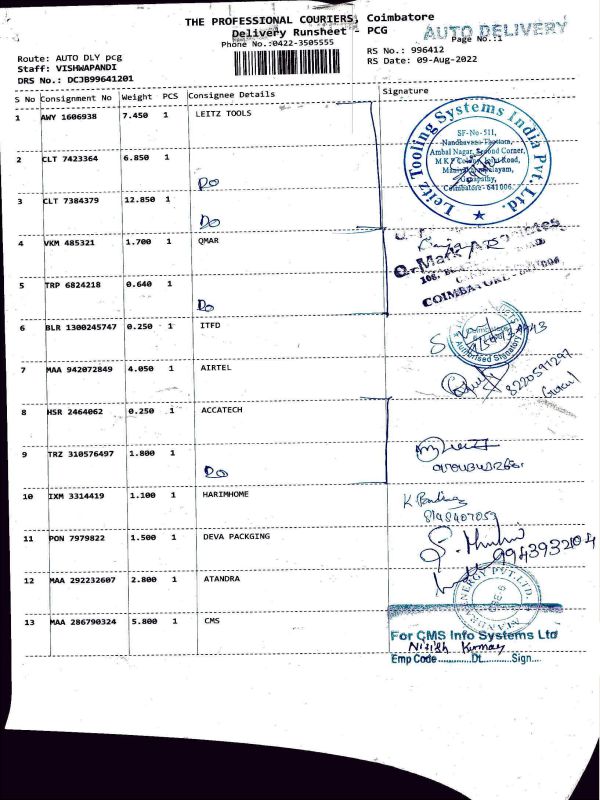 THE PROFESSIONAL COURIERS, Coimbatore
Delivery Runsheet - PCG
AUTO DELIVERY
Phone No.:0422-3505555
Page No.:1
Route: AUTO DLY pcg
RS No.: 996412
Staff: VISHWAPANDI
RS Date: 09-Aug-2022
DRS No.: DCJB99641201
S No Consignment No Weight PCS Consignee Details Signature
1 AWY 1606938 7.450 1 LEITZ TOOLS
2 CLT 7423364 6.850 1
Do
3 CLT 7384379 12.850 1
Do
Leitz Tooling Systems India Pvt. Ltd.
SF-No-511,
Nandhavana Thottam,
Ambal Nagar, Second Corner,
Coimbatore - 641006.
4 VKM 485321 1.700 1 QMAR
5 TRP 6824218 0.640 1
Do
COIMBATORE
6 BLR 1300245747 0.250 1 ITFD
Authorised Signatory
7 MAA 942072849 4.050 1 AIRTEL
8220591297
8 HSR 2464062 0.250 1 ACCATECH
9 TRZ 310576497 1.800 1
Do
10 IXM 3314419 1.100 1 HARIMHOME
11 PON 7979822 1.500 1 DEVA PACKGING
9943932104
12 MAA 292232607 2.800 1 ATANDRA
13 MAA 286790324 5.800 1 CMS
For CMS Info Systems Ltd
Nitish Kumar
Emp Code............Dt.........Sign....